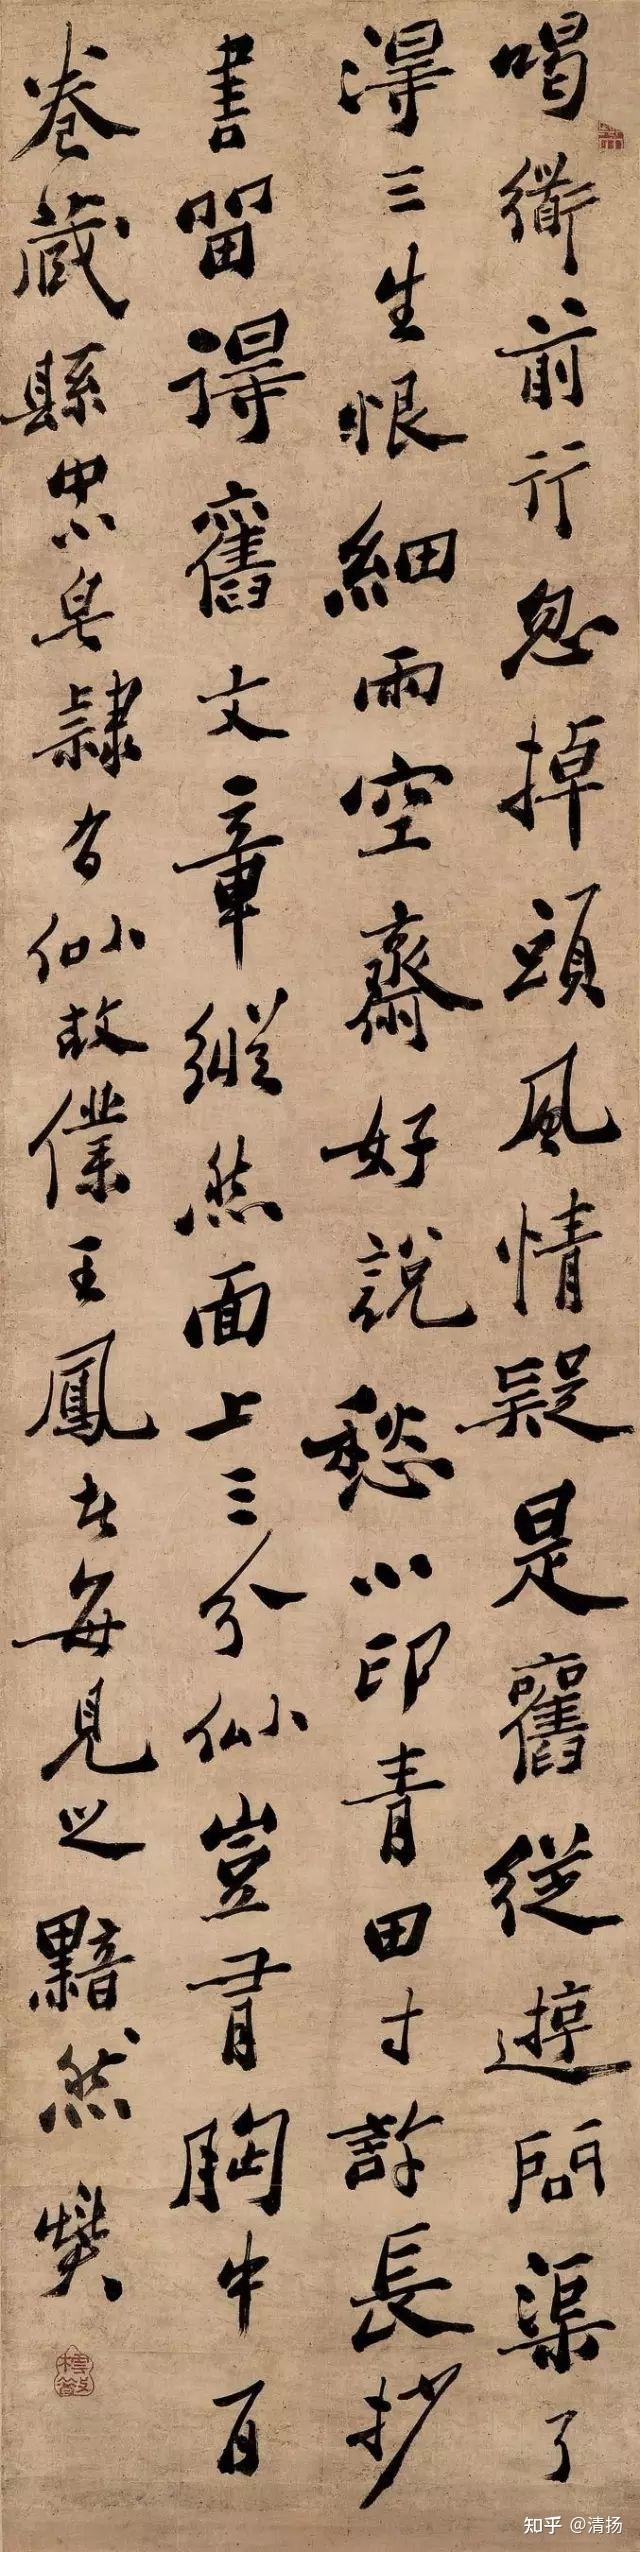 喝衟前行忽掉頭風情疑是舊從遊問渠了
得三生恨細雨空齋好說愁小印青田寸許長抄
書留得舊文章縱然面上三分似豈有胸中百
卷藏縣中皂隸有似故僕王鳳者每見之黯然燮
知乎 @清扬